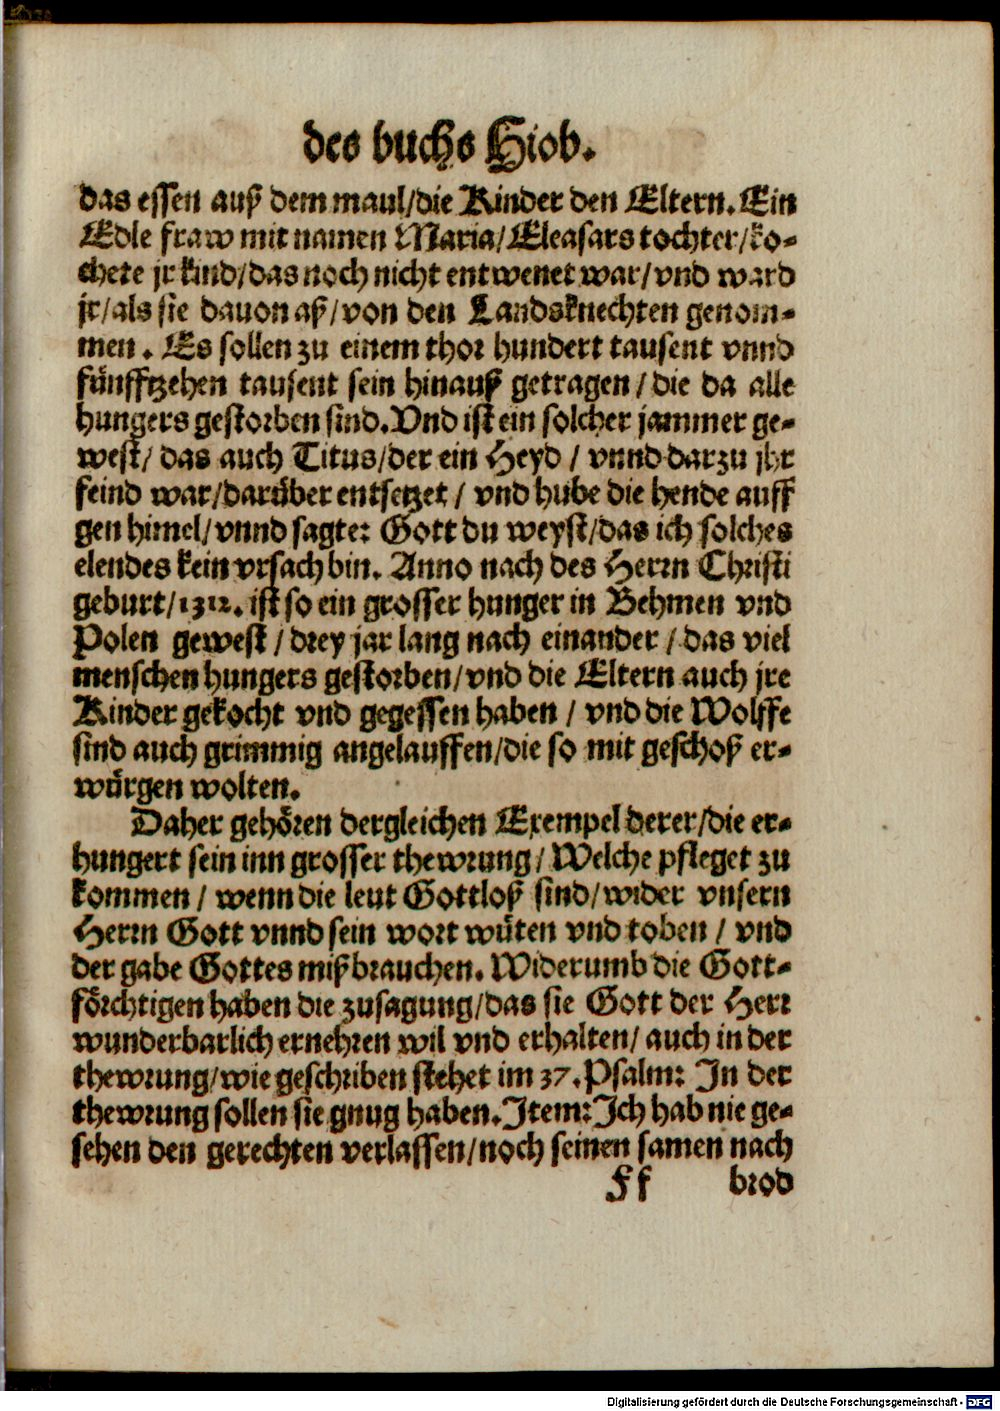 des buchs Hiob.
das essen auß dem maul/die Kinder den Eltern. Ein
Edle fraw mit namen Maria/Eleasars tochter/ko-
chete jr kind/das noch nicht entwenet war/vnd ward
jr/als sie dauon aß/von den Landsknechten genom-
men. Es sollen zu einem thor hundert tausent vnnd
fünfftzehen tausent sein hinauß getragen/die da alle
hungers gestorben sind. Vnd ist ein solcher jammer ge-
west/das auch Titus/der ein Heyd/vnnd darzu jhr
feind war/darüber entsetzet/vnd hube die hende auff
gen himel/vnnd sagte: Gott du weyst/das ich solches
elendes kein vrsach bin. Anno nach des Herrn Christi
geburt/1312. ist so ein grosser hunger in Behmen vnd
Polen gewest/drey jar lang nach einander/das viel
menschen hungers gestorben/vnd die Eltern auch jre
Kinder gekocht vnd gegessen haben/vnd die Wolffe
sind auch grimmig angelauffen/die so mit geschoß er-
würgen wolten.
Daher gehören dergleichen Exempel derer/die er-
hungert sein inn grosser thewrung/Welche pfleget zu
kommen/wenn die leut Gottloß sind/wider vnsern
Herrn Gott vnnd sein wort wüten vnd toben/vnd
der gabe Gottes mißbrauchen. Widerumb die Gott-
förchtigen haben die zusagung/das sie Gott der Herr
wunderbarlich ernehren wil vnd erhalten/auch in der
thewrung/wie geschriben stehet im 37. Psalm: In der
thewrung sollen sie gnug haben. Item: Ich hab nie ge-
sehen den gerechten verlassen/noch seinen samen nach
Ff brod
Digitalisierung gefördert durch die Deutsche Forschungsgemeinschaft - DFG